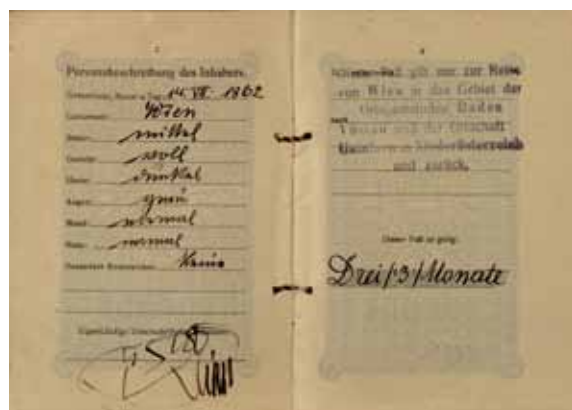 Personsbeschreibung des Inhabers.
14. VII. 1862
Geburtsort: Wien
Statur: mittel
Gesicht: voll
Haare: dunkel
Augen: grau
Mund: normal
Nase: normal
Besondere Kennzeichen: Keine
Eigenhändige Unterschrift
Paß gilt nur zur Reise
von Wien in das Gebiet der
Baden
und der Ortschaft
in Niederösterreich
und zurück.
Dieser Paß ist gültig:
Drei /3/ Monate